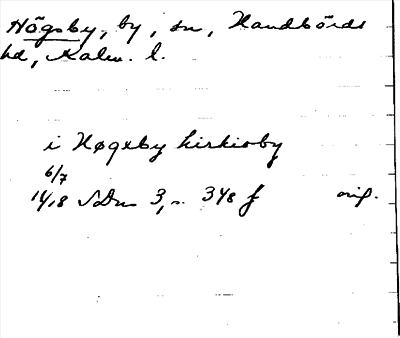 Högsby, by, sn, Handbörds
hd, Kalm. l.
i Høgxby kirkioby
6/7
1418 SDns 3, n. 348 f orig.